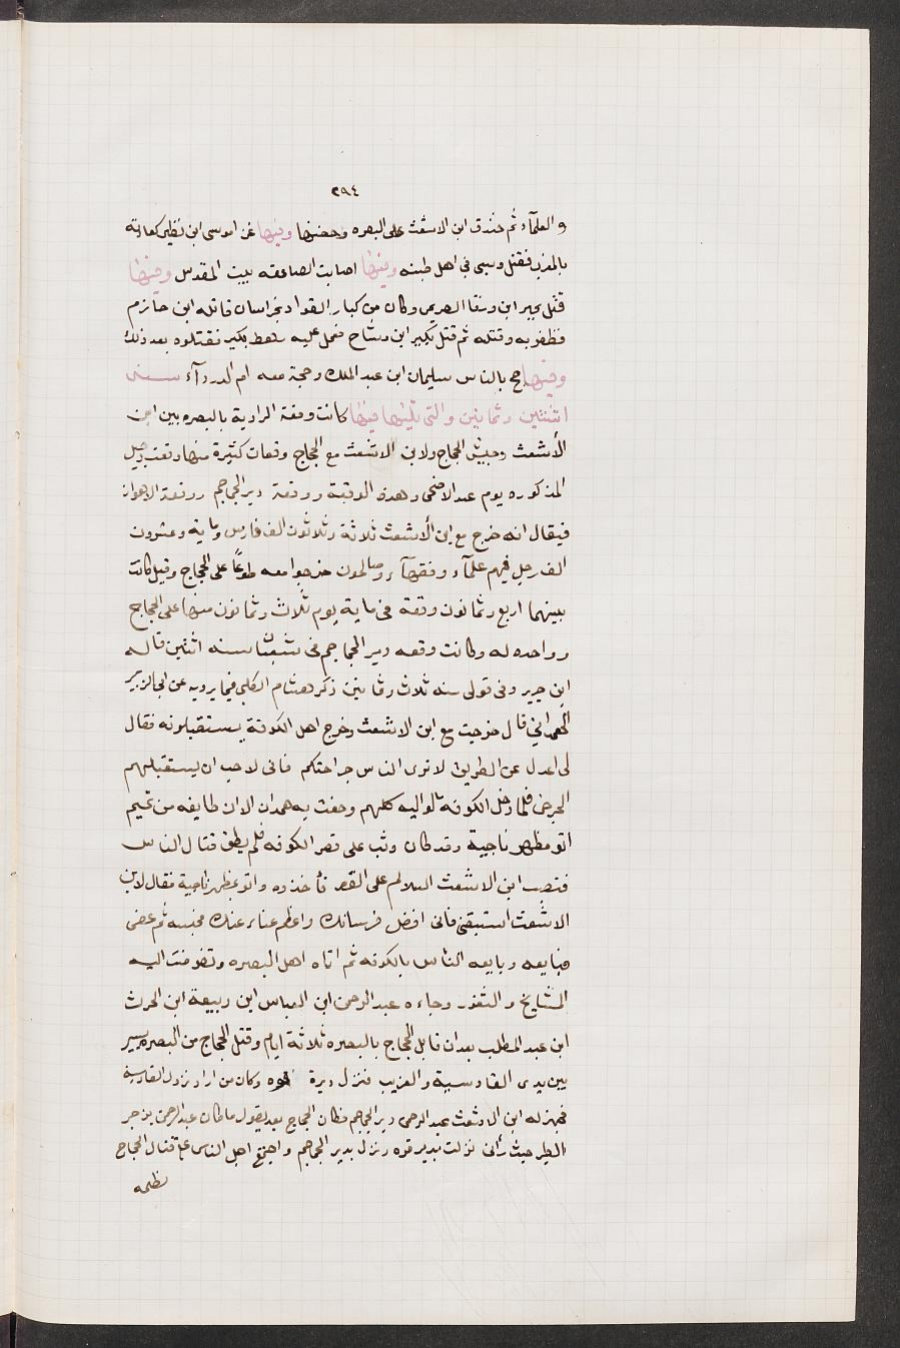 ٢٩٤
والعلمآء ثم خندق ابن الاشعث على البصره وحصنها وفيها غزا موسى ابن نظير كعادته
بالمغرب فقتل وسبى في اهل طبنه وفيها اصابت الصاعقه بيت المقدس وفيها
قتل بحير ابن ورقا الصريمى وكان من كبار القواد بخراسان قاتله ابن حازم
فظفر به وقتله ثم قتل بكير ابن وشاح فحمل عليه رهط بكير فقتلوه بعد ذلك
وفيها حج بالناس سليمان ابن عبد الملك وحجة معه ام الدردآء سنه
اثنتين وثمانين والتى تليها فيها كانت وقعة الزاوية بالبصره بين ابن
الأشعث وجيش الحجاج ولابن الاشعث مع الحجاج وقعات كثيرة منها وقعت دجيل
المذكوره يوم عيد الاضحى وهذه الوقعة ووقعة دير الجماجم ووقعة الاهواز
فيقال انه خرج مع ابن الأشعث ثلاثة وثلاثون الف فارس وماية وعشرون
الف رجل فيهم علمآء وفقهآء وصالحون خرجوا معه طوعًا على الحجاج وقيل كانت
بينهما اربع وثمانون وقعة فى ماية يوم ثلاث وثمانون منها على الحجاج
وواحده له وكانت وقعه دير الجماجم فى شعبان سنه اثنين قاله
ابن جرير وفى قولى سنه ثلاث وثمانين ذكر هشام الكلبي فيما يرويه عن ابى الزبير
الهمدانى قال خرجت مع ابن الاشعث وخرج اهل الكوفة يستقبلونه فقال
لى اعدل عن الطريق لا يرى الناس جراحتكم فانى لا احب ان يستقبلهم
الجرحى فلما دخل الكوفه مالوا اليه كلهم وحفت به همدان الا ان طايفه من تميم
اتو مطهر ناجية وقد كان وثب على قصر الكوفه فلم يطق قتال الناس
فنصب ابن الاشعث السلالم على القصر فأخذوه واتو بمطهر ناجية فقال لابن
الاشعث استبقنى فانى افضل فرسانك واعظم عناء عنك فحبسه ثم عفى
فبايعه وبايعه الناس بالكوفه ثم اتاه اهل البصره وتفوضت اليه
المشايخ والثغور وجاءه عبد الرحمن ابن العباس ابن ربيعة ابن الحرث
ابن عبد المطلب بعد ان قابل الحجاج بالبصره ثلاثة ايام وقتل الحجاج من البصره يسير
بين يدى القادسية والعزيب فنزل ديرة قره وكان من اراد نزول القادسية
فجهز له ابن الاشعث عبد الرحمن دير الجماجم فكان الحجاج بعد يقول ما كان عبد الرحمن يزجر
الطير حيث رأنى نزلت بدير قره ونزل بدير الجماجم واجتمع اهل الناس على قتال الحجاج